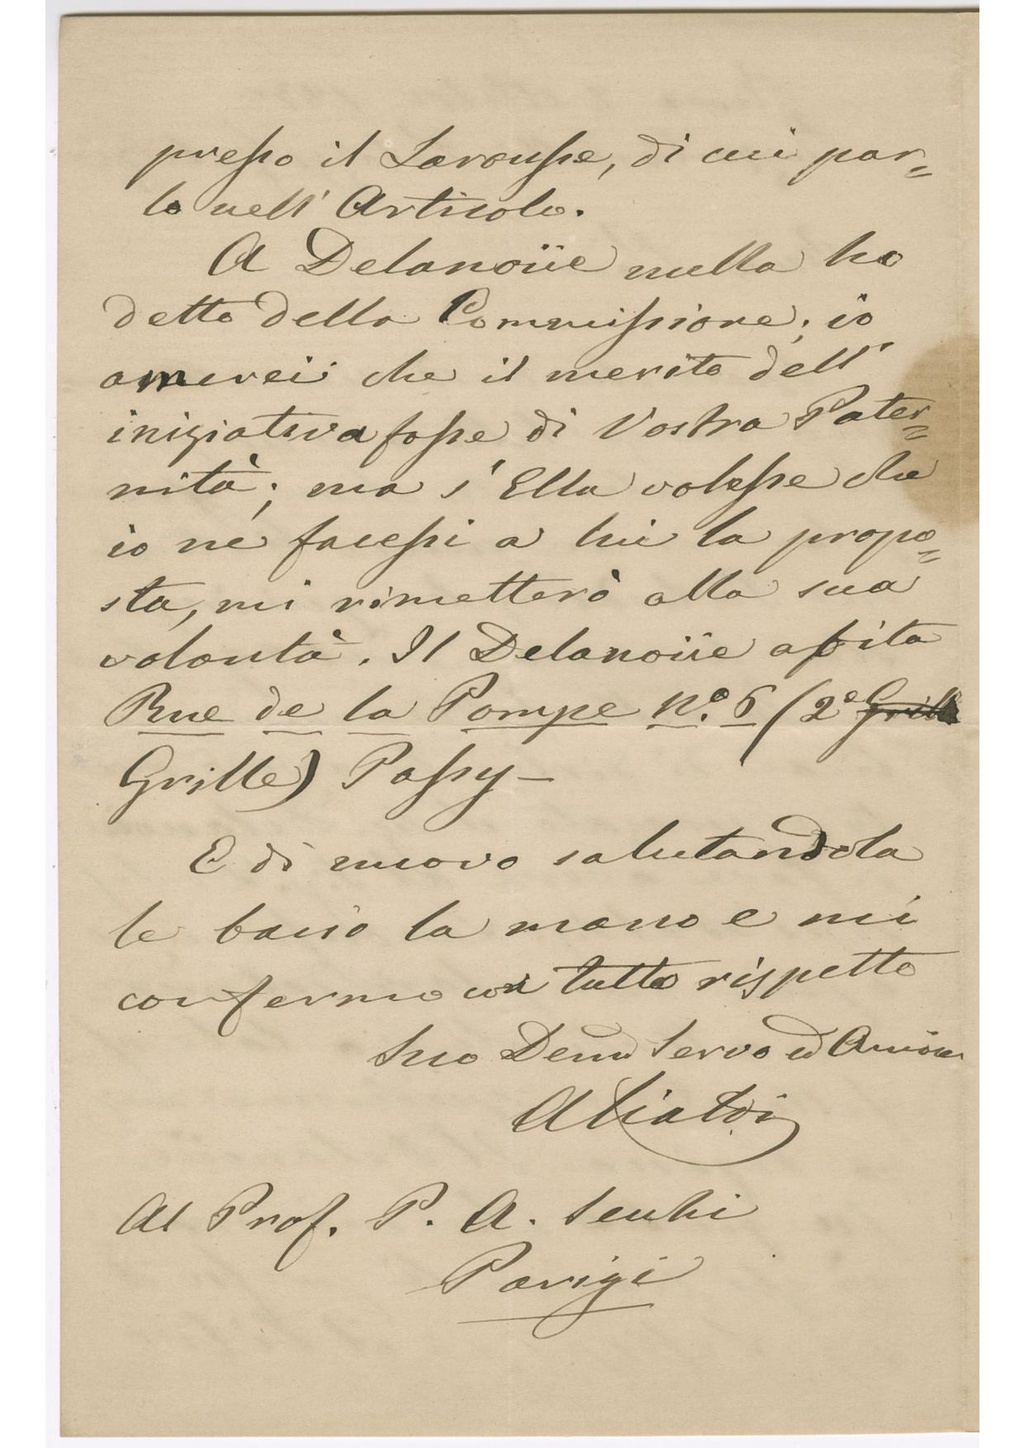 presso il Larousse, di cui par=
lo nell' Articolo.
A Delanoüe nulla ho
detto della Commissione; io
amerei che il merito dell'
iniziativa fosse di Vostra Pater=
nità; ma s' Ella volesse che
io ne facessi a lui la propo=
sta, mi rimetterò alla sua
volontà. Il Delanoüe abita
Rue de la Pompe No. 6 (2e Grille
Grille) Passy –
E di nuovo salutandola
le bacio la mano e mi
confermo con tutto rispetto
Suo Devmo Servo ed Amico
ACialdi
Al Prof. P. A. Secchi
Parigi